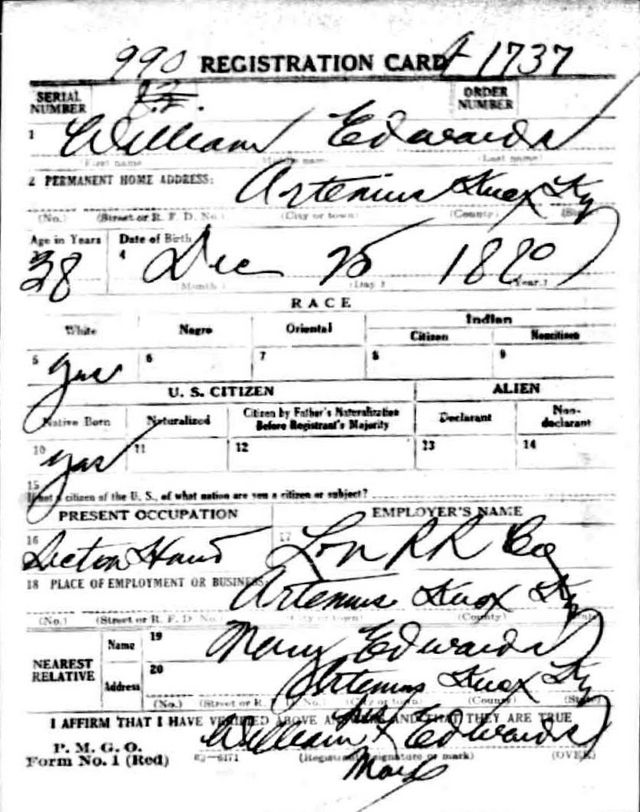 990 REGISTRATION CARD A 1737
SERIAL NUMBER ORDER NUMBER
1 William Edwards
(First name) (Middle name) (Last name)
2 PERMANENT HOME ADDRESS: Artemus Knox Ky
(No.) (Street or R. F. D. No.) (City or town) (County) (State)
Age in Years Date of Birth
38 4 Dec 25 1880
(Month) (Day) (Year.)
RACE
White Negro Oriental Indian
Citizen Noncitizen
5 yes 6 7 8 9
U. S. CITIZEN ALIEN
Native Born Naturalized Citizen by Father's Naturalization Before Registrant's Majority Declarant Non-declarant
10 yes 11 12 13 14
15 If not a citizen of the U. S., of what nation are you a citizen or subject?
PRESENT OCCUPATION EMPLOYER'S NAME
16 Section Hand 17 RR Co
18 PLACE OF EMPLOYMENT OR BUSINESS:
Artemus Knox Ky
(No.) (Street or R. F. D. No.) (City or town) (County) (State)
NEAREST RELATIVE Name 19 Mary Edwards
Address 20 Artemus Knox Ky
(No.) (Street or R. F. D. No.) (City or town) (County) (State)
I AFFIRM THAT I HAVE VERIFIED ABOVE ANSWERS AND THAT THEY ARE TRUE
P. M. G. O.
Form No. 1 (Red) 03—6171 William his x Edwards
(Registrant's signature or mark) (OVER)
Mark